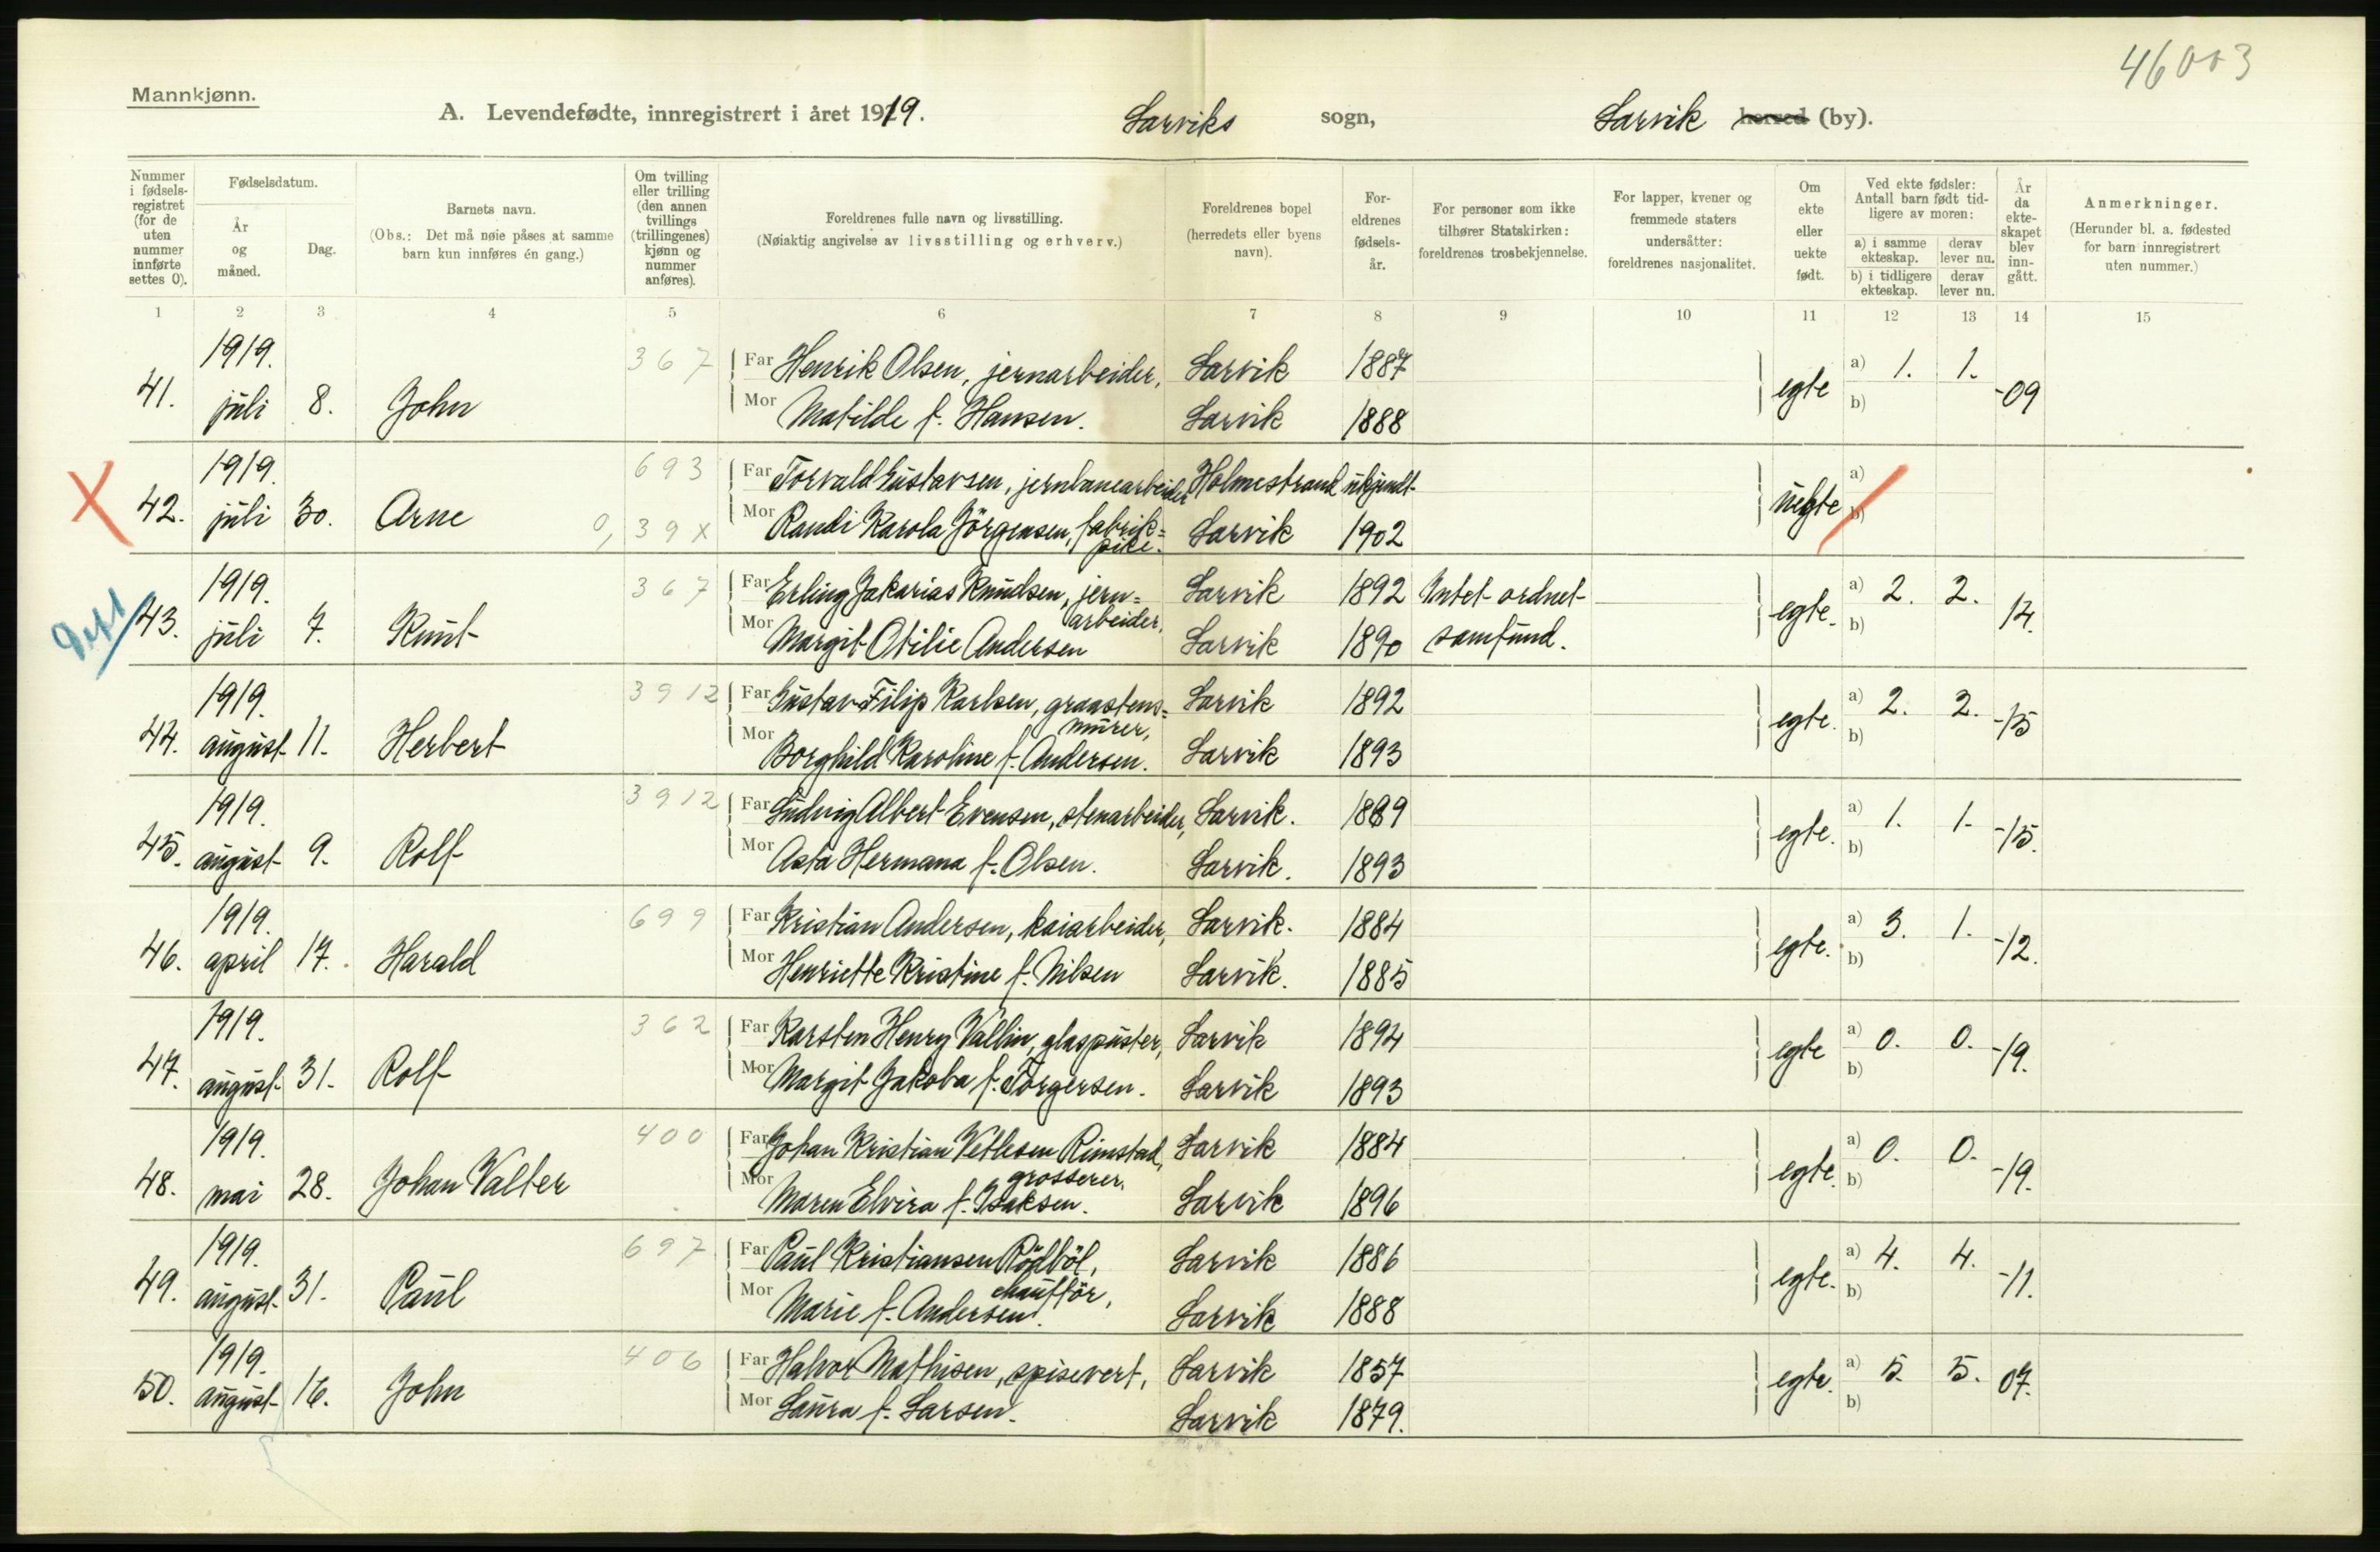 46003
Mannkjønn.
A. Levendefødte, innregistrert i året 1919. Larviks sogn, Larvik herred (by).
Nummer i fødselsregistret (for de uten nummer innførte settes 0).
Fødselsdatum.
År og måned.
Dag.
Barnets navn.
(Obs.: Det må nøie påses at samme barn kun innføres én gang.)
Om tvilling eller trilling (den annen tvillings (trillingenes) kjønn og nummer anføres).
Foreldrenes fulle navn og livsstilling.
(Nøiaktig angivelse av livsstilling og erhverv.)
Foreldrenes bopel (herredets eller byens navn).
Foreldrenes fødselsår.
For personer som ikke tilhører Statskirken: foreldrenes trosbekjennelse.
For lapper, kvener og fremmede staters undersåtter: foreldrenes nasjonalitet.
Om ekte eller uekte født.
Ved ekte fødsler: Antall barn født tidligere av moren:
a) i samme ekteskap.
derav lever nu.
b) i tidligere ekteskap.
derav lever nu.
År da ekteskapet blev inngått.
Anmerkninger.
(Herunder bl. a. fødested for barn innregistrert uten nummer.)
1 2 3 4 5 6 7 8 9 10 11 12 13 14 15
41. 1919. juli 8. John 367 Far Henrik Olsen, jernarbeider, Larvik 1887 egte a) 1. 1. -09
Mor Matilde f. Hansen. Larvik 1888 b)
42. 1919. juli 30. Arne 693 Far Torvald Gustavsen, jernbanearbeider Holmestrand ukjendt uegte a)
0, 39x Mor Randi Karola Jörgensen, fabrik=pike. Larvik 1902 b)
43. 1919. juli 7. Knut 367 Far Erling Jakarias Knudsen, jern=arbeider, Larvik 1892 Intet ordnet egte. a) 2. 2. 14.
Mor Margit Otilie Andersen Larvik 1890 samfund. b)
44. 1919. august 11. Herbert 3912 Far Gustav Filip Karlsen, graastens=murer, Larvik 1892 egte. a) 2. 2. -15
Mor Borghild Karoline f. Andersen. Larvik 1893 b)
45. 1919. august 9. Rolf 3912 Far Ludvig Albert Evensen, stenarbeider, Larvik. 1889 egte. a) 1. 1. -15.
Mor Asta Hermana f. Olsen. Larvik. 1893 b)
46. 1919. april 17. Harald 699 Far Kristian Andersen, kaiarbeider, Larvik. 1884 egte. a) 3. 1. -12.
Mor Henriette Kristine f. Nilsen Larvik. 1885 b)
47. 1919. august 31. Rolf 362 Far Karsten Henry Vallin, glaspuster, Larvik 1894 egte a) 0. 0. -19.
Mor Margit Jakoba f. Torgersen. Larvik 1893 b)
48. 1919. mai 28. Johan Valter 400 Far Johan Kristian Vetlesen Rimstad, grosserer. Larvik 1884 egte. a) 0. 0. -19.
Mor Maren Elvira f. Isaksen. Larvik 1896 b)
49. 1919. august 31. Paul 697 Far Paul Kristiansen Rödböl, chaufför, Larvik 1886 egte. a) 4. 4. -11.
Mor Marie f. Andersen. Larvik 1888 b)
50. 1919. august 16. John 406 Far Halvor Mathisen, spisevert, Larvik 1857 egte. a) 5. 5. 07.
Mor Laura f. Larsen. Larvik 1879. b)